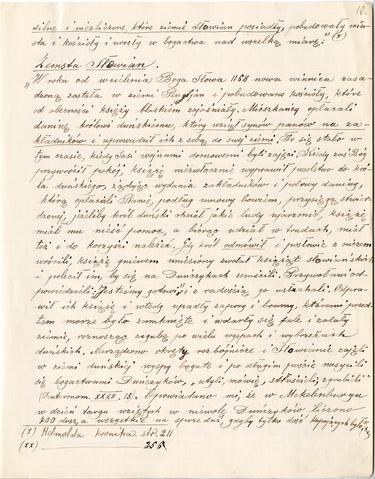 10.
silne i niezliczone, które ziemię Słowian posiadły, pobudowały mia-
sta i kościoły i wrosły w bogactwa nad wszelką miarę." (x)
Zemsta Słowian.
"W roku od wcielenia Boga Słowa 1168 nowa winnica zasa-
dzoną została w ziemi Rugjan i pobudowano kościoły, które
od obecności księży blaskiem zajaśniały. Mieszkańcy opłacali
daninę królowi duńskiemu, który wziął synów panów na za-
kładników i uprowadził ich z sobą do swej ziemi. To się stało w
tym czasie, kiedy Sasi wojnami domowemi byli zajęci. Kiedy zaś Bóg
przywrócił pokój, książę niezwłocznie wyprawił poselstwo do kró-
la duńskiego, żądając wydania zakładników i połowy daniny,
którą opłacali Ranie, podług umowy bowiem, przysięgą stwier-
dzonej, jeśliby król duński chciał jakie ludy ujarzmić, książę
miał mu nieść pomoc, a biorąc udział w trudach, miał
też i do korzyści należeć. Gdy król odmówił i posłowie z niczem
wrócili, książę gniewem uniesiony zwołał książąt słowiańskich
i polecił im, by się na Duńczykach zemścili. Przywołani od-
powiedzieli: "Jesteśmy gotowi", i z radością go usłuchali. Odpra-
wił ich książę i wtedy opadły zapory i bramy, któremi przed-
tem morze było zamknięte i wdarły się fale i zalały
ziemię, roznosząc zagubę po wielu wyspach i wybrzeżach
duńskich. Narządzono okręty rozbójnicze i Słowianie zajęli
w ziemi duńskiej wyspy bogate i po długim poście nasycili
się bogactwami Duńczyków, "utyli, mówię, stłuścieli, zgrubieli"
(Deuteronom. XXXII, 15). Opowiadano mi, że w Mekelenburgu
w dzień targu wziętych w niewolę Duńczyków liczono
700 dusz, a wszystkie na sprzedaż, gdyby tylko dość kupujących było. (xx)
(x) Helmolda kronika str. 211
(xx) 256